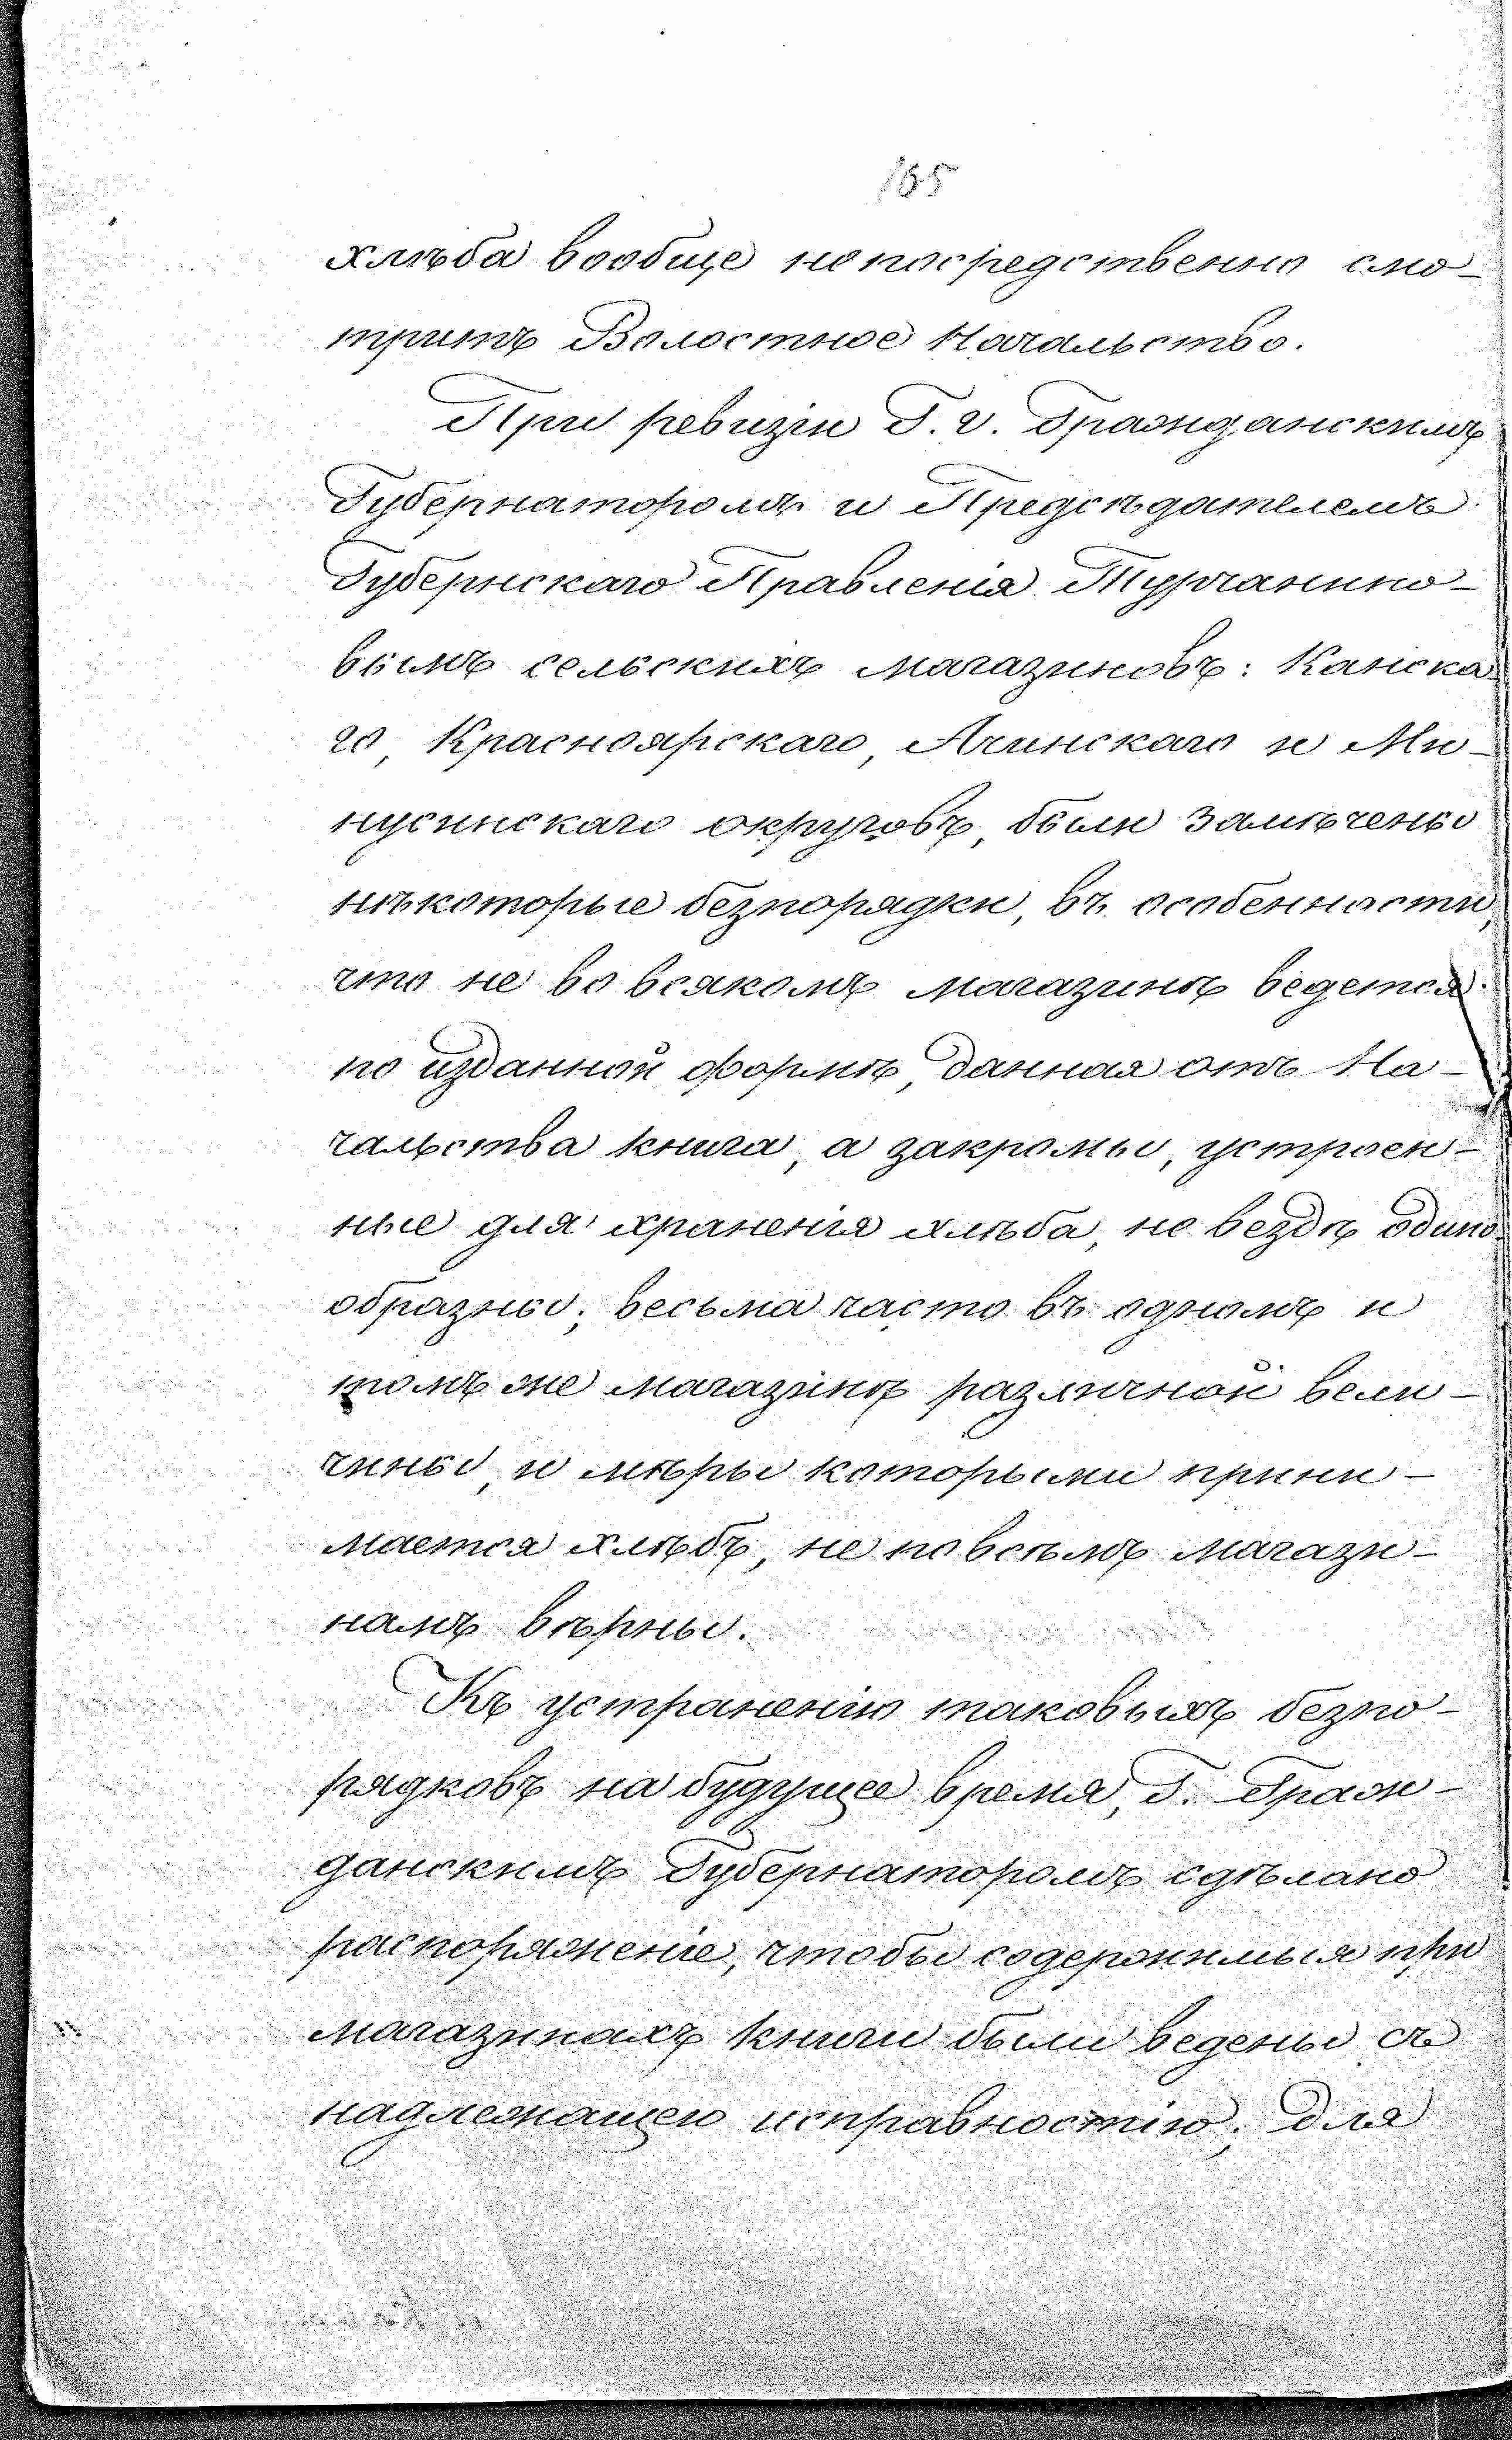 165
хлѣба вообще непосредственно смо-
тритъ Волостное Начальство.
При ревизіи Г. г. Гражданскимъ
Губернаторомъ и Предсѣдателемъ
Губернскаго Правленія Турчанино-
вымъ сельскихъ магазиновъ: Канска-
го, Красноярскаго, Ачинскаго и Ми-
нусинскаго округовъ, были замѣчены
нѣкоторые безпорядки, въ особенности,
что не во всякомъ магазинѣ ведется
по изданной формѣ, данная отъ На-
чальства книга, а закромы, устроен-
ные для храненія хлѣба, не вездѣ одино-
образны; весьма часто въ одномъ и
томъ же магазинѣ различной вели-
чины, и мѣры которыми прини-
мается хлѣбъ, не по всѣмъ магази-
намъ вѣрны.
Къ устраненію таковыхъ безпо-
рядковъ на будущее время, Г. Граж-
данскимъ Губернаторомъ сдѣлано
распоряженіе, чтобы содержимыя при
магазинахъ книги были ведены съ
надлежащею исправностію; для